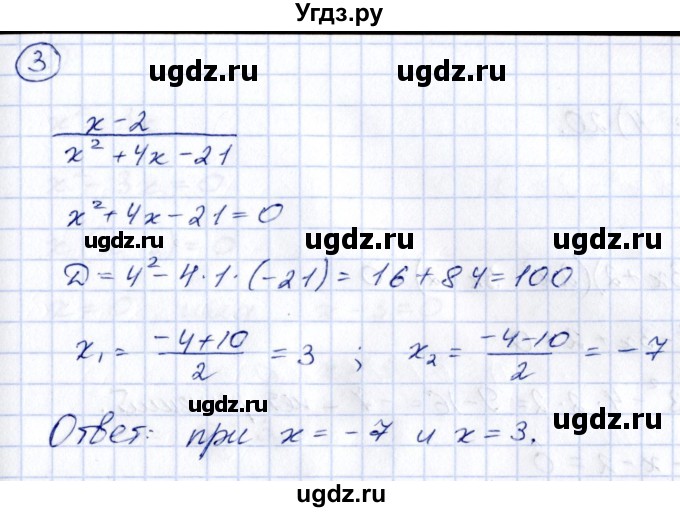 Угдз.ру
3
ugdz.ru ugdz.ru
x-2
x²+4x-21
x²+4x-21=0
ugdz.ru ugdz.ru
D=4²-4·1·(-21)=16+84=100
x₁=(-4+10)/2=3 ; x₂=(-4-10)/2=-7
ugdz.ru ugdz.ru
Ответ: при x=-7 и x=3.
ugdz.ru